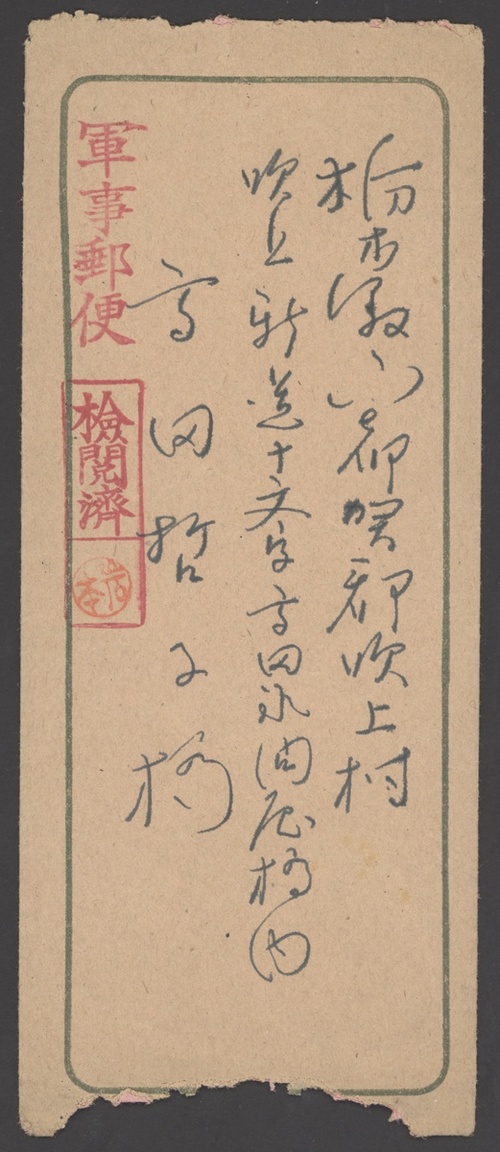 栃木縣下都賀郡吹上村
吹上新道十文字高田油屋様内
高田哲子様
軍事郵便
檢閲濟